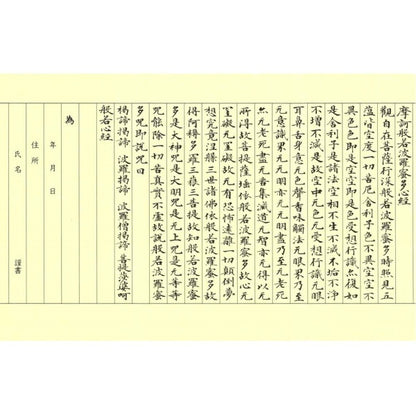 摩訶般若波羅蜜多心経
觀自在菩薩行深般若波羅蜜多時照見五
蘊皆空度一切苦厄舎利子色不異空空不
異色色即是空空即是色受想行識亦復如
是舎利子是諸法空相不生不滅不垢不浄
不増不減是故空中无色无受想行識无眼
耳鼻舌身意无色聲香味觸法无眼界乃至
无意識界无无明亦无无明盡乃至无老死
亦无老死盡无苦集滅道无智亦无得以无
所得故菩提薩埵依般若波羅蜜多故心无
罣礙无罣礙故无有恐怖遠離一切顛倒夢
想究竟涅槃三世諸佛依般若波羅蜜多故
得阿耨多羅三藐三菩提故知般若波羅蜜
多是大神咒是大明咒是无上咒是无等等
咒能除一切苦真實不虚故説般若波羅蜜
多咒即説咒曰
揭諦揭諦 波羅揭諦 波羅僧揭諦 菩提娑婆呵
般若心経
為
年 月 日
住所
氏名 謹書